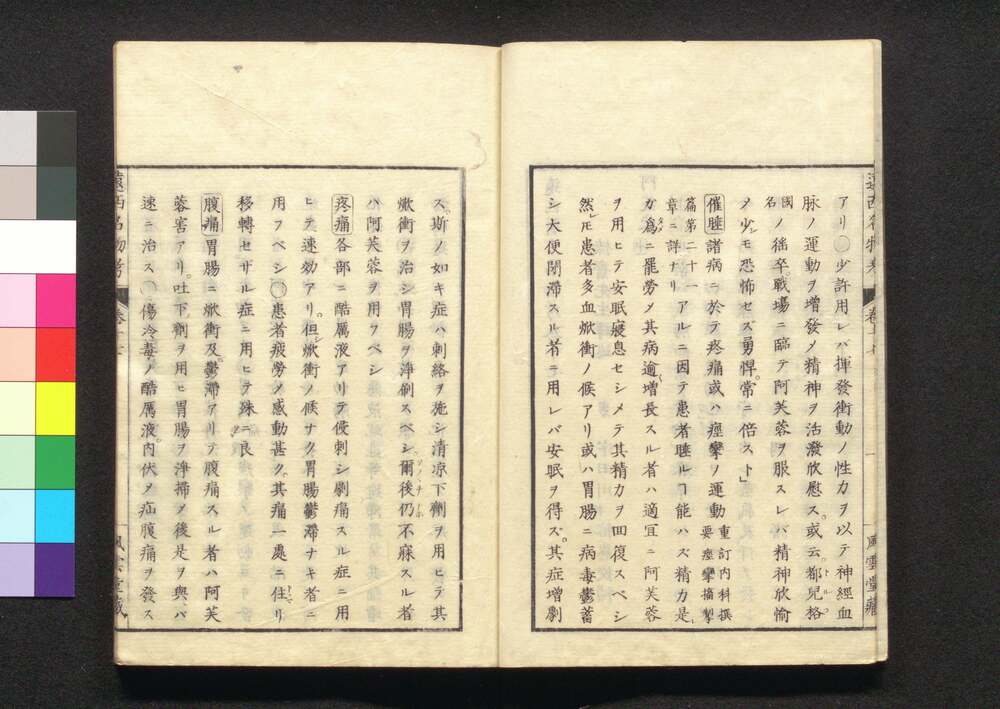 アリ◯少許用レバ揮發衝動ノ性力ヲ以テ神經血
脉ノ運動ヲ增發メ精神ヲ活潑欣慰ス或云都兒格
國名ノ徭卒戰場ニ臨テ阿芙蓉ヲ服スレバ精神欣愉
メ少モ恐怖セズ勇悍常ニ倍スト」
催睡諸病ニ於テ疼痛或ハ痙攣ノ運動重訂内科撰要痙攣搐掣
篇第二十一章ニ詳ナリアルニ因テ患者睡ルヿ能ハズ精力是
ガ爲ニ罷勞メ其病逾增長スル者ハ適宜ニ阿芙蓉
ヲ用ヒテ安眠寢息セシメテ其精力ヲ囬復スベシ
然レ𪜈患者多血焮衝ノ候アリ或ハ胃腸ニ病毒鬱蓄
シ大便閉滯スル者ニ用レバ安眠ヲ得ズ其症增劇
ス斯ノ如キ症ハ刺絡ヲ施シ清涼下劑ヲ用ヒテ其
焮衝ヲ治シ胃腸ヲ淨刷スベシ爾後仍不寐スル者
ハ阿芙蓉ヲ用フベシ
疼痛各部ニ酷厲液アリテ侵刺シ劇痛スル症ニ用
ヒテ速効アリ但焮衝ノ候ナク胃腸鬱滯ナキ者ニ
用フベシ◯患者疲勞メ感動甚ク其痛一處ニ住リ
移轉セザル症ニ用ヒテ殊ニ良
腹痛胃腸ニ焮衝及鬱滯アリテ腹痛スル者ハ阿芙
蓉害アリ吐下劑ヲ用ヒ胃腸ヲ淨掃メ後是ヲ與バ
速ニ治ス◯傷冷毒ノ酷厲液内伏メ疝腹痛ヲ發ス
遠西名物考
風雲堂藏